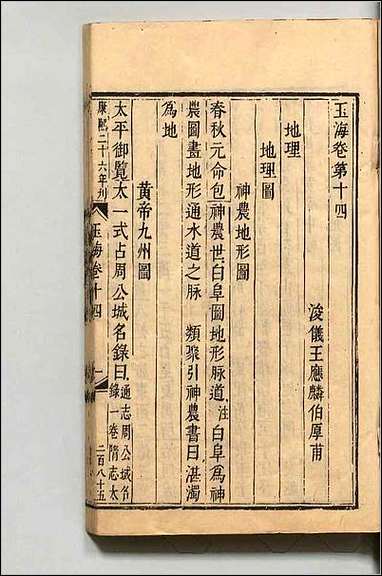 玉海卷第十四
浚儀王應麟伯厚甫
地理
地理圖
神農地形圖
春秋元命包神農世白阜圖地形脉道注白阜為神
農圖畫地形通水道之脉 類聚引神農書曰湛濁
為地
黃帝九州圖
太平御覽太一式占周公城名錄曰通志周公城名
錄一卷隋志太
康熙二十六年刋 玉海卷十四 一 二百八十五